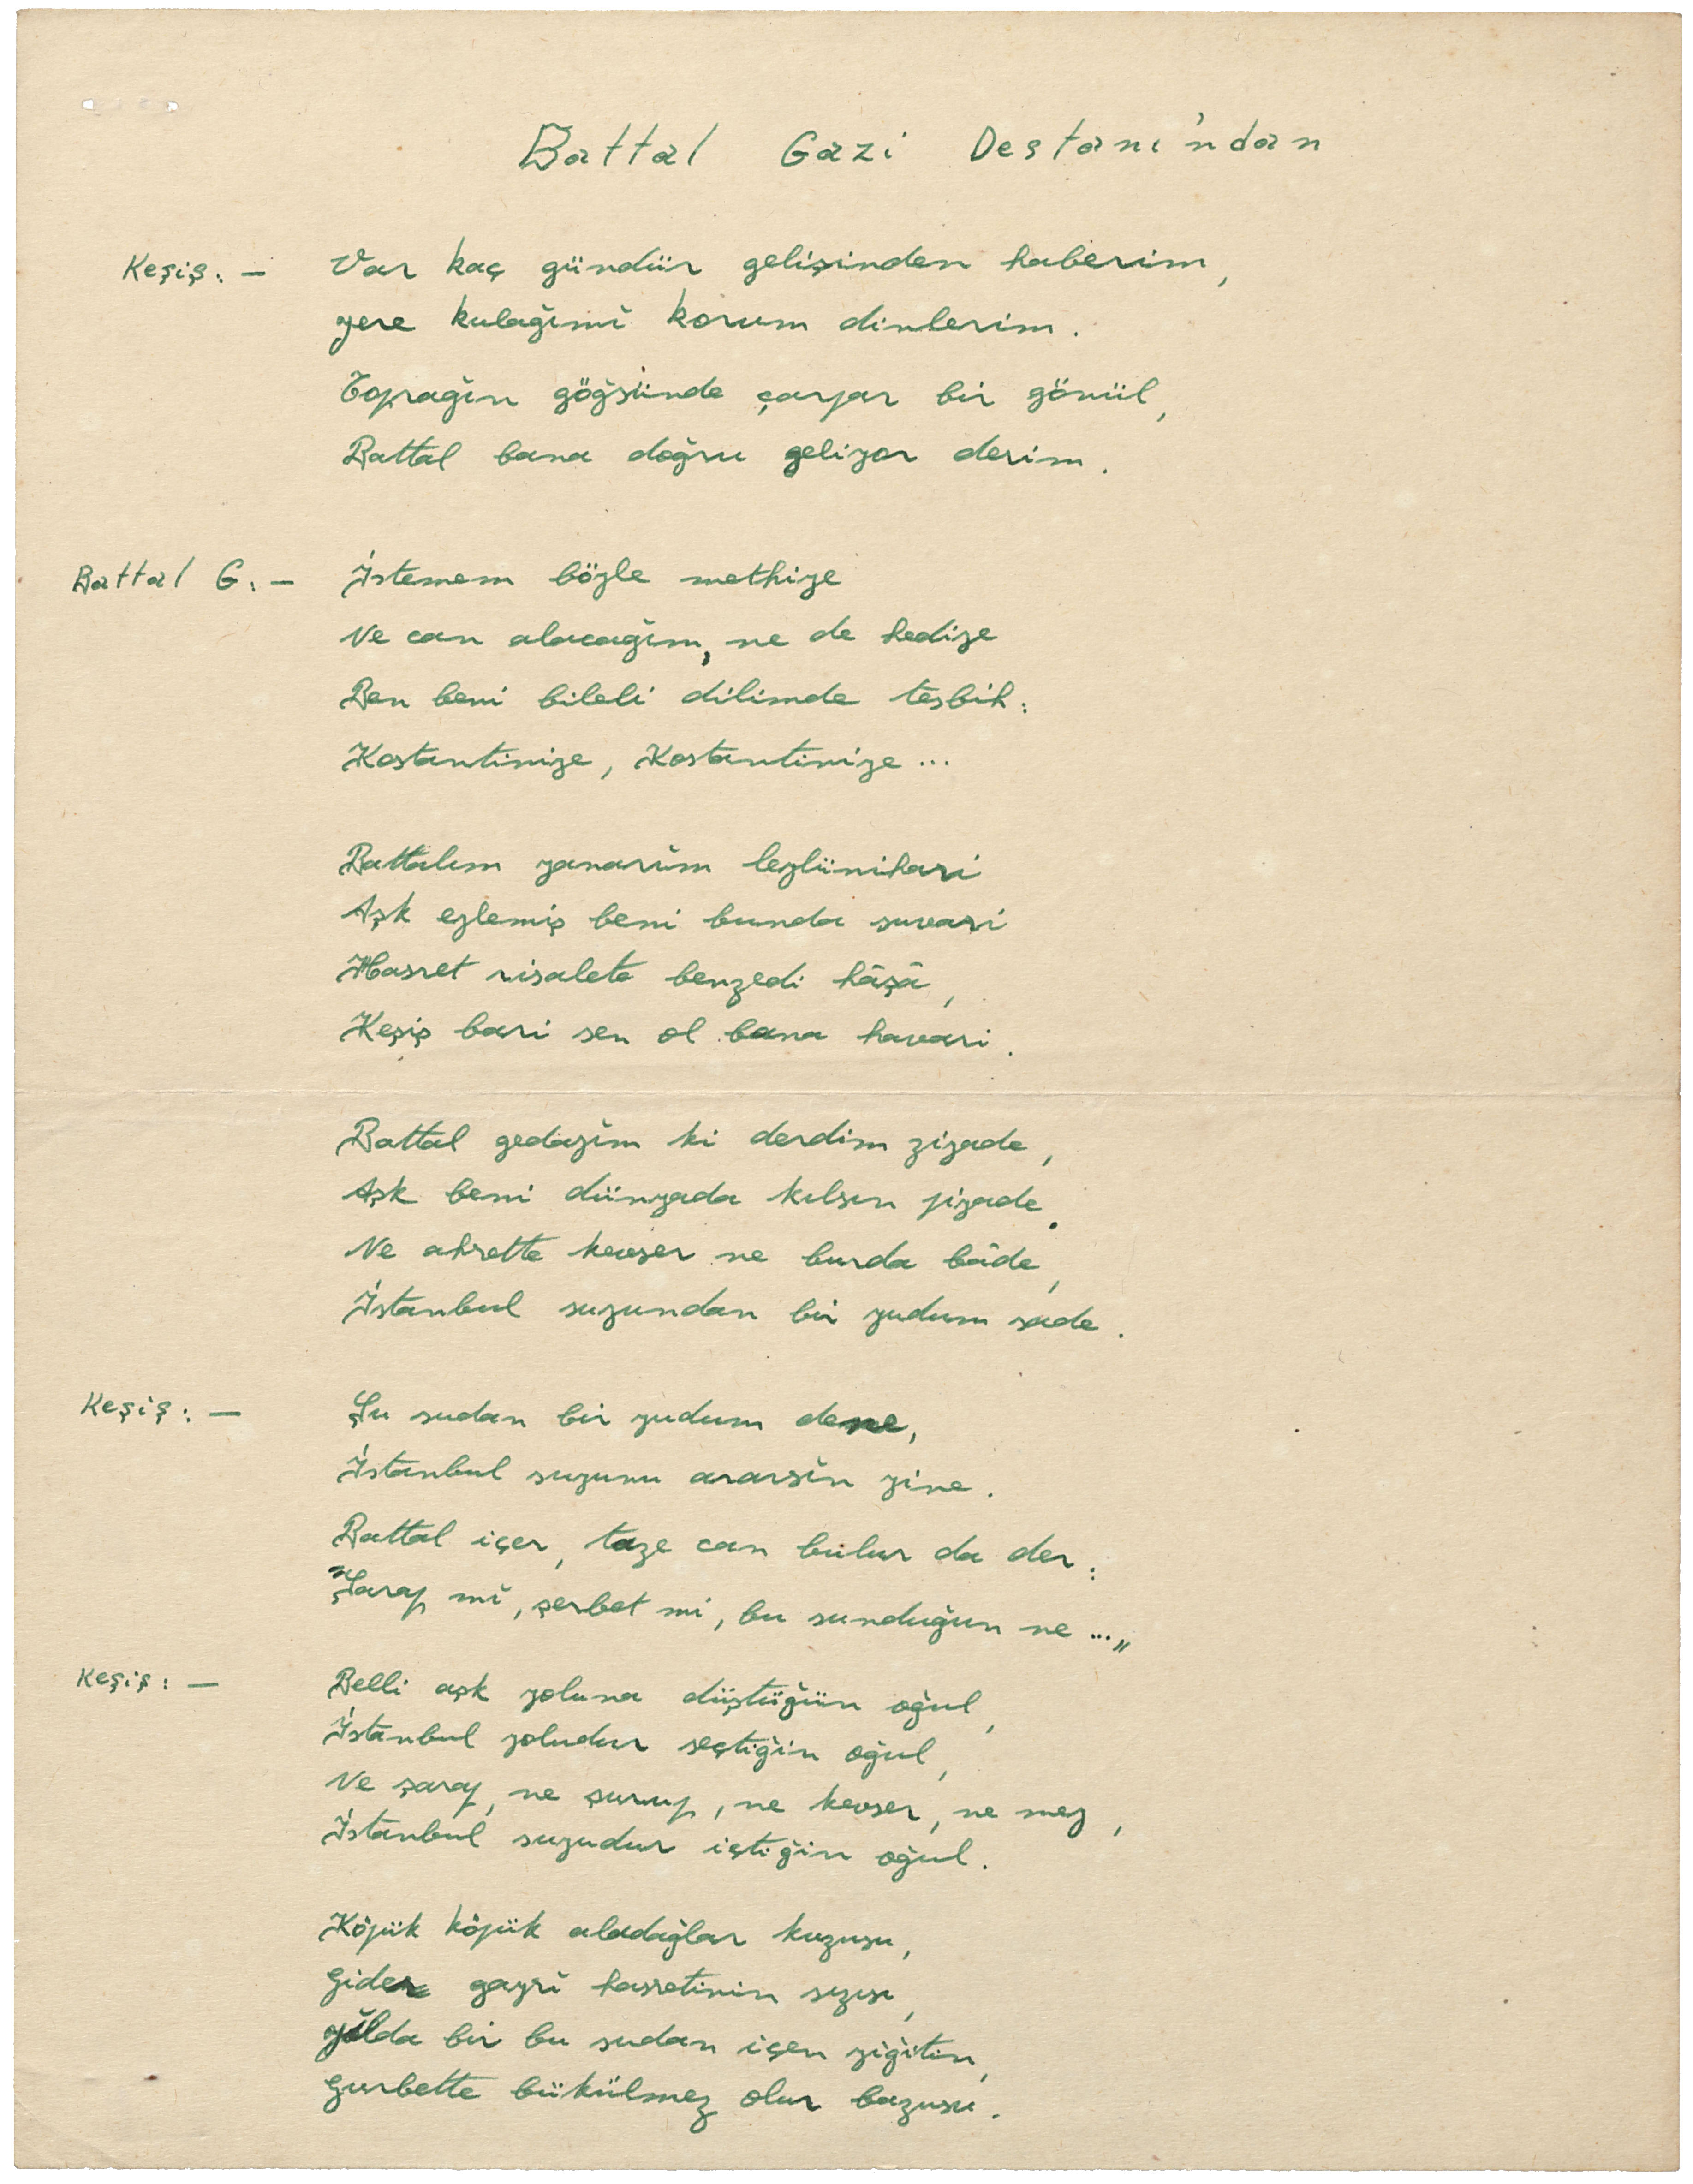 Battal Gazi Destanı'ndan
Keşiş: — Var kaç gündür gelişinden haberim,
yere kulağımı korum dinlerim.
Toprağın göğsünde çarpar bir gönül,
Battal bana doğru geliyor derim.
Battal G: — İstemem böyle methiye
Ne can alacağım, ne de hediye
Ben beni bileli dilimde tesbih:
Kostantiniye, Kostantiniye ...
Battalım yanarım leylünihari
Aşk eylemiş beni bunda suvari
Hasret risalete benzedi hâşâ,
Keşiş bari sen ol bana havari.
Battal gedayim ki derdim ziyade,
Aşk beni dünyada kılsın piyade.
Ne ahrette kevser ne burda bâde,
İstanbul suyundan bir yudum sade.
Keşiş: — Şu sudan bir yudum dene,
İstanbul suyunu ararsın yine.
Battal içer, taze can bulur da der:
"Şarap mı, şerbet mi, bu sunduğun ne ..."
Keşiş: — Belli aşk yoluna düştüğün oğul,
İstanbul yoludur seçtiğin oğul,
Ne şarap, ne şurup, ne kevser, ne mey,
İstanbul suyudur içtiğin oğul.
Köpük köpük aladağlar kuzusu,
Gider gayrı hasretinin sızısı,
yılda bir bu sudan içen yiğitin,
Gurbette bükülmez olur bazusu.